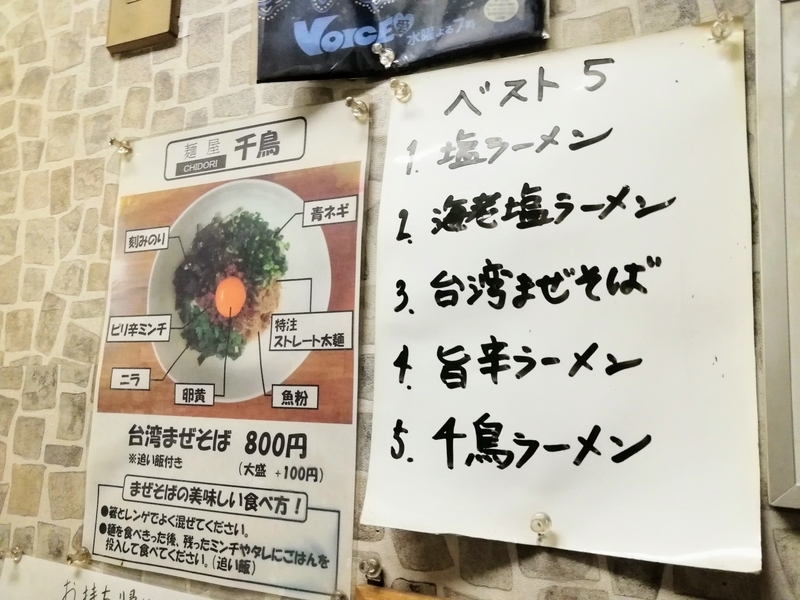 VOICE
水曜よる7時
麺屋 千鳥
CHIDORI
青ネギ
刻みのり
ピリ辛ミンチ
特注
ストレート太麺
ニラ
卵黄
魚粉
台湾まぜそば 800円
※追い飯付き
(大盛 +100円)
まぜそばの美味しい食べ方!
●箸とレンゲでよく混ぜてください。
●麺を食べきった後、残ったミンチやタレにごはんを
投入して食べてください。(追い飯)
ベスト5
1. 塩ラーメン
2. 海老塩ラーメン
3. 台湾まぜそば
4. 旨辛ラーメン
5. 千鳥ラーメン
お持ち帰